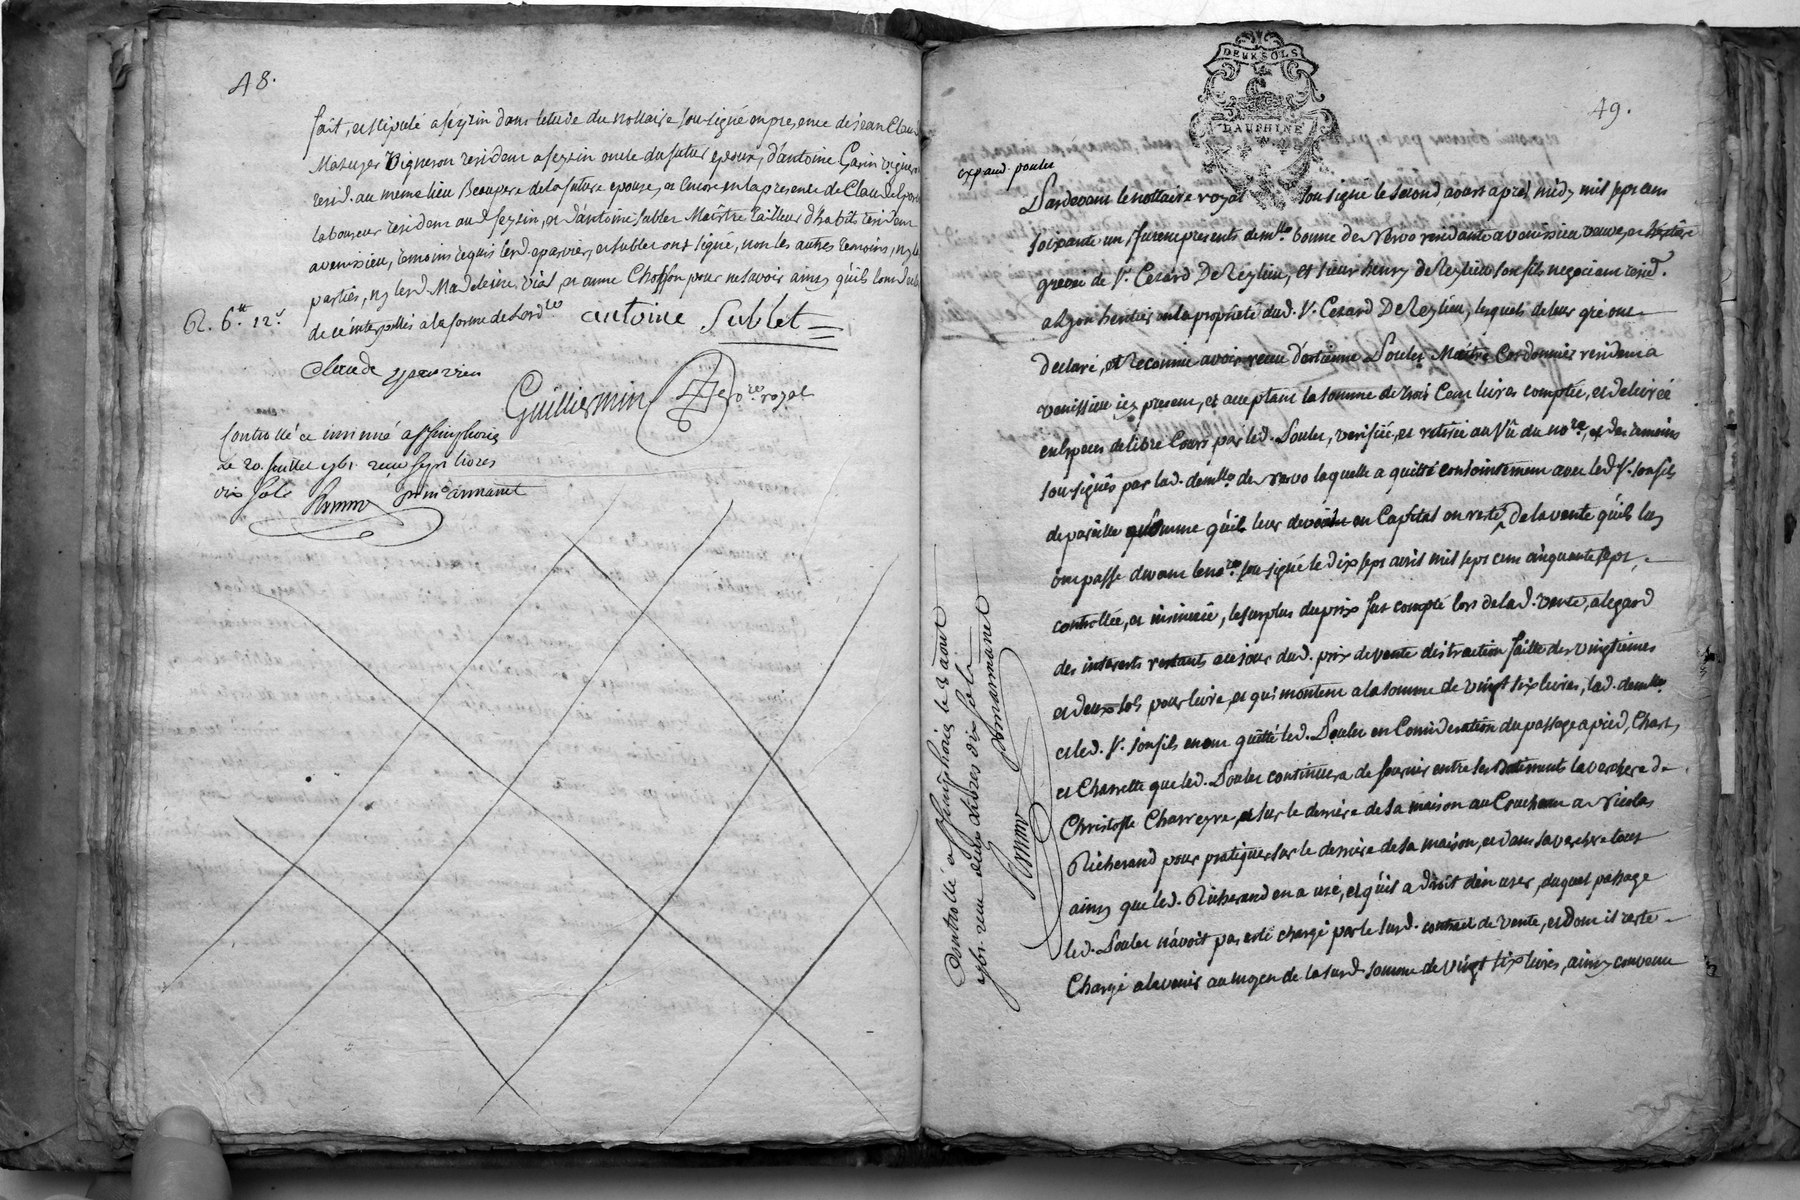 48.
fait, et stipulé a feyzin dans letude du nottaire sousigné en presence de jean Claude
Mazuyer Vigneron resident a feyzin oncle du futur epoux, d'antoine Garin vigneron
resid. au meme lieu Beaupere de la future epouse, et encore en la presence de Claude
laboureur resident aud. feyzin, et d'antoine sublet Maitre tailleur d'habits resident
a venissieu, temoins requis led. aparvier, et sublet ont signé, non les autres temoins, ny les
parties, ny lesd. Madeleine Vial, et anne Chosson pour ne scavoir ainsy qu'ils l'ont dit
de ce interpellés a la forme de lord.ce antoine Sublet
R. 6.tt 12.s
Claude
Guilliermin No.re royal
Controllé et insinué a st simphorien
Le 20. juillet 1761. receu sept livres
dix sols armanet
49.
DEUX SOLS
DAUPHINE
exp aud. poulet
Pardevant le nottaire royal sousigné le second aoust apres midy mil sept cent
soixante un furent presents dem.lle bonne de Vervo residante a venissieu veuve, et heritiere
grevée de S.r Cezard De Reylieu, et sieur henry de Reylieu son fils negociant resid.
a Lyon heritier en la proprieté dud. S.r Cezard De Reylieu, lesquels de leur gré ont
declaré, et reconnu avoir receu d'estienne Poulet Maitre Cordonnier resident a
venissieu icy present, et acceptant la somme de trois Cent livres comptée, et delivrée
en especes de libre Cours par led. Poulet, verifiée, et retirée au Vû du no.re, et des temoins
sousignés par lad. dem.lle de Vervo laquelle a quitté conjointement avec led. S.r son fils
de pareille somme qu'il leur devoit en Capital en reste, de la vente qu'ils luy
ont passé devant le no.re sousigné le dix sept avril mil sept cent cinquante sept,
controllée, et insinuée, le surplus du prix fut compté lors de lad. vente, a legard
des interests restants a ce jour dud. prix de vente distraction faitte des vingtiemes
et deux sols pour livre, et qui montent a la somme de vingt six livres, lad. dem.lle
et led. S.r son fils en ont quitté led. Poulet en Consideration du passage a pied, Chart,
et Charrette que led. Poulet continuera de fournir entre ses Batiments la verchere de
Christofle Charreyre, et sur le derriere de sa maison au Couchant a Nicolas
Richerand pour pratiquer sur le derriere de sa maison, et dans sa verchere tout
ainsy que led. Richerand en a usé, et qu'il a droit d'en user, duquel passage
led. Poulet n'avoit pas eté chargé par le susd. contract de vente, et dont il reste
Chargé a l'avenir au moyen de la susd. somme de vingt six livres, ainsy convenu
Controllé a st simphorien le 3 aout
1761. receu deux livres dix sols
armanet